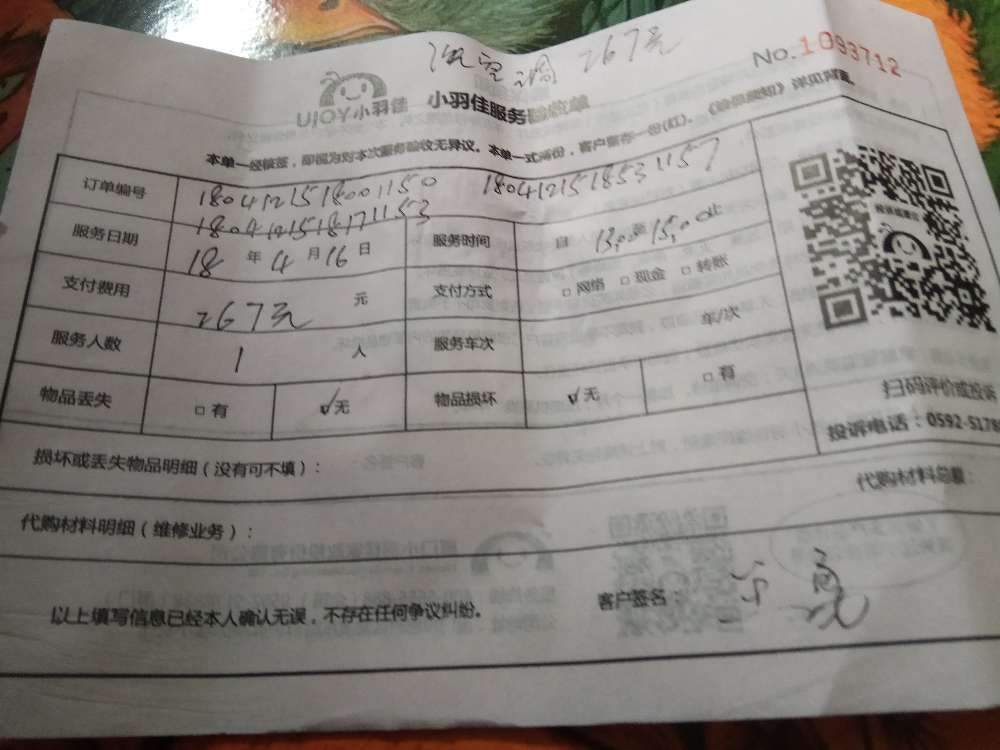 洗空调 267元
No.1093712
UJOY小羽佳 小羽佳服务验收单
本单一经核签，即视为对本次服务验收无异议。本单一式两份，客户留存一份(红)。《验收须知》详见背面。
订单编号 1804121518001150 1804121518531157
1804121518171153
服务日期 18 年 4 月 16 日 服务时间 自 13:00 至 15:00 止
支付费用 267元 元 支付方式 □ 网络 □ 现金 □ 转账
服务人数 1 人 服务车次 车/次
物品丢失 □ 有 ☑无 物品损坏 ☑无 □ 有
扫码评价或投诉
投诉电话：0592-5178
损坏或丢失物品明细（没有可不填）：
代购材料总额：
代购材料明细（维修业务）：
以上填写信息已经本人确认无误，不存在任何争议纠纷。 客户签名：